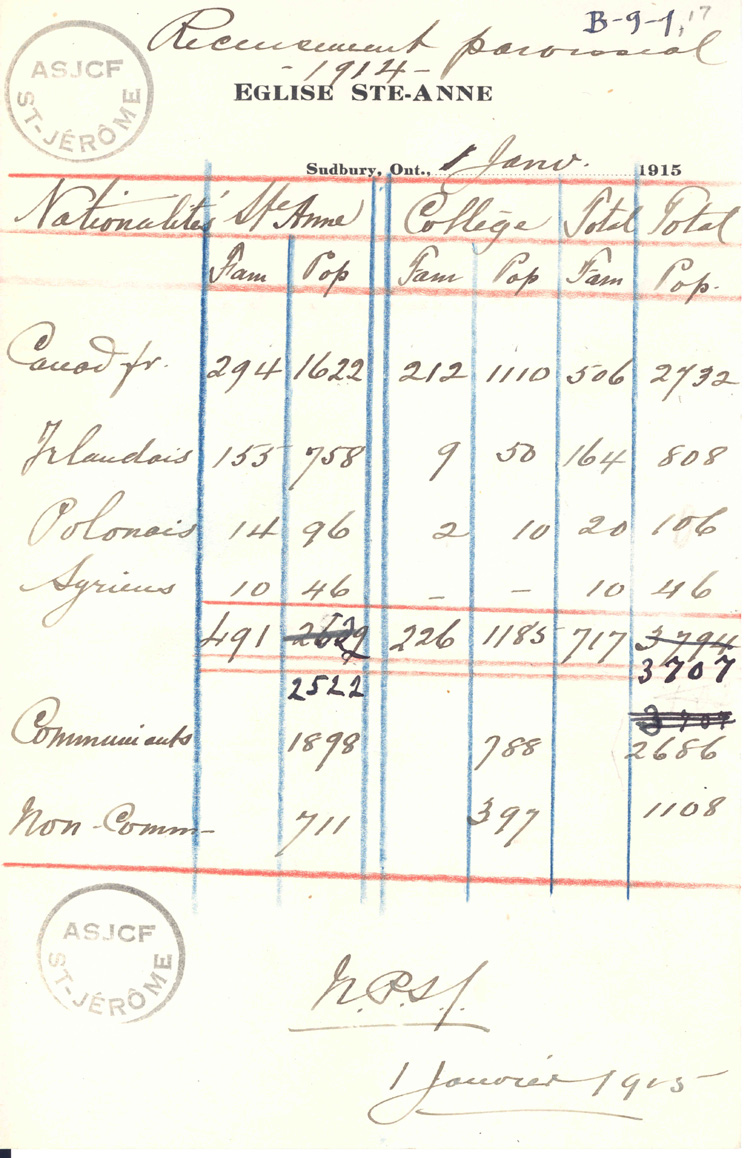 B-9-1, 17
Recensement paroissial
- 1914 -
ASJCF
ST-JÉRÔME
EGLISE STE-ANNE
Sudbury, Ont., 1 Janv. 1915
Nationalités Ste Anne Collège Total Total
Fam Pop Fam Pop Fam Pop.
Canad fr. 294 1622 212 1110 506 2732
Irlandais 155 758 9 50 164 808
Polonais 14 96 2 10 20 106
Syriens 10 46 - - 10 46
491 226 1185 717 3794
3707
2522
3707
Communiants 1898 788 2686
Non-Comm- 711 397 1108
ASJCF
ST-JÉRÔME
1 Janvier 1915